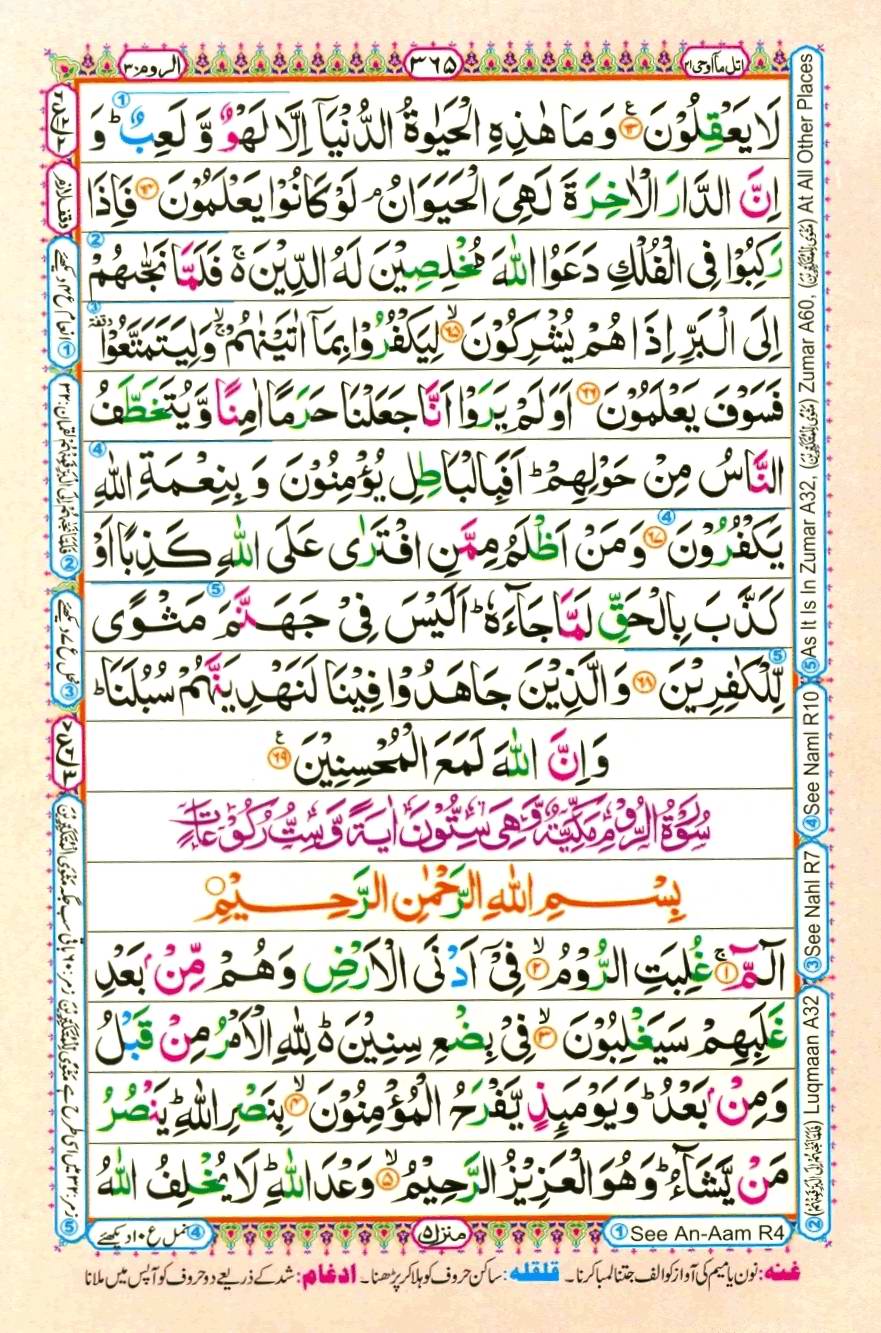 اتل مآ اوحی ۲۱
۳۶۵
الروم ۳۰
لَا يَعْقِلُوْنَ ﴿۶۳﴾ وَمَا هٰذِهِ الْحَيٰوةُ الدُّنْيَآ اِلَّا لَهْوٌ وَّ لَعِبٌ ؕ وَ
اِنَّ الدَّارَ الْاٰخِرَةَ لَهِىَ الْحَيَوَانُ ۘ لَوْ كَانُوْا يَعْلَمُوْنَ ﴿۶۴﴾ فَاِذَا
رَكِبُوْا فِى الْفُلْكِ دَعَوُا اللّٰهَ مُخْلِصِيْنَ لَهُ الدِّيْنَ ۚ فَلَمَّا نَجّٰىهُمْ
اِلَى الْبَرِّ اِذَا هُمْ يُشْرِكُوْنَ ﴿۶۵﴾ۙ لِيَكْفُرُوْا بِمَآ اٰتَيْنٰهُمْ ۚۙ وَلِيَتَمَتَّعُوْا ۥوقفة
فَسَوْفَ يَعْلَمُوْنَ ﴿۶۶﴾ اَوَلَمْ يَرَوْا اَنَّا جَعَلْنَا حَرَمًا اٰمِنًا وَّيُتَخَطَّفُ
النَّاسُ مِنْ حَوْلِهِمْ ؕ اَفَبِالْبَاطِلِ يُؤْمِنُوْنَ وَ بِنِعْمَةِ اللّٰهِ
يَكْفُرُوْنَ ﴿۶۷﴾ وَمَنْ اَظْلَمُ مِمَّنِ افْتَرٰى عَلَى اللّٰهِ كَذِبًا اَوْ
كَذَّبَ بِالْحَقِّ لَمَّا جَآءَهٗ ؕ اَلَيْسَ فِىْ جَهَنَّمَ مَثْوًى
لِّلْكٰفِرِيْنَ ﴿۶۸﴾ وَالَّذِيْنَ جَاهَدُوْا فِيْنَا لَنَهْدِيَنَّهُمْ سُبُلَنَا ؕ
وَاِنَّ اللّٰهَ لَمَعَ الْمُحْسِنِيْنَ ﴿۶۹﴾
سُوْرَةُ الرُّوْمِ مَكِّيَّةٌ وَّهِىَ سِتُّوْنَ اٰيَةً وَّسِتُّ رُكُوْعَاتٍ
بِسْمِ اللّٰهِ الرَّحْمٰنِ الرَّحِيْمِ
الٓمّٓ ﴿۱﴾ۚ غُلِبَتِ الرُّوْمُ ﴿۲﴾ۙ فِىْٓ اَدْنَى الْاَرْضِ وَهُمْ مِّنْۢ بَعْدِ
غَلَبِهِمْ سَيَغْلِبُوْنَ ﴿۳﴾ۙ فِىْ بِضْعِ سِنِيْنَ ؕ لِلّٰهِ الْاَمْرُ مِنْ قَبْلُ
وَمِنْۢ بَعْدُ ؕ وَيَوْمَئِذٍ يَّفْرَحُ الْمُؤْمِنُوْنَ ﴿۴﴾ۙ بِنَصْرِ اللّٰهِ ؕ يَنْصُرُ
مَنْ يَّشَآءُ ؕ وَهُوَ الْعَزِيْزُ الرَّحِيْمُ ﴿۵﴾ۙ وَعْدَ اللّٰهِ ؕ لَا يُخْلِفُ اللّٰهُ
① See An-Aam R4
منزل ۵
④ نمل ع ۱۰ د یکھئے
② Luqmaan A32
③ See Nahl R7
④ See Naml R10
⑤ As It Is In Zumar A32, Zumar A60, At All Other Places
① انعام ع ۴ دیکھئے
③ نحل ع ۷ دیکھئے
غنہ: نون یا میم کی آواز کو الف جتنا لمبا کرنا۔ قلقلہ: ساکن حروف کو ہلا کر پڑھنا۔ ادغام: شد کے ذریعے دو حروف کو آپس میں ملانا